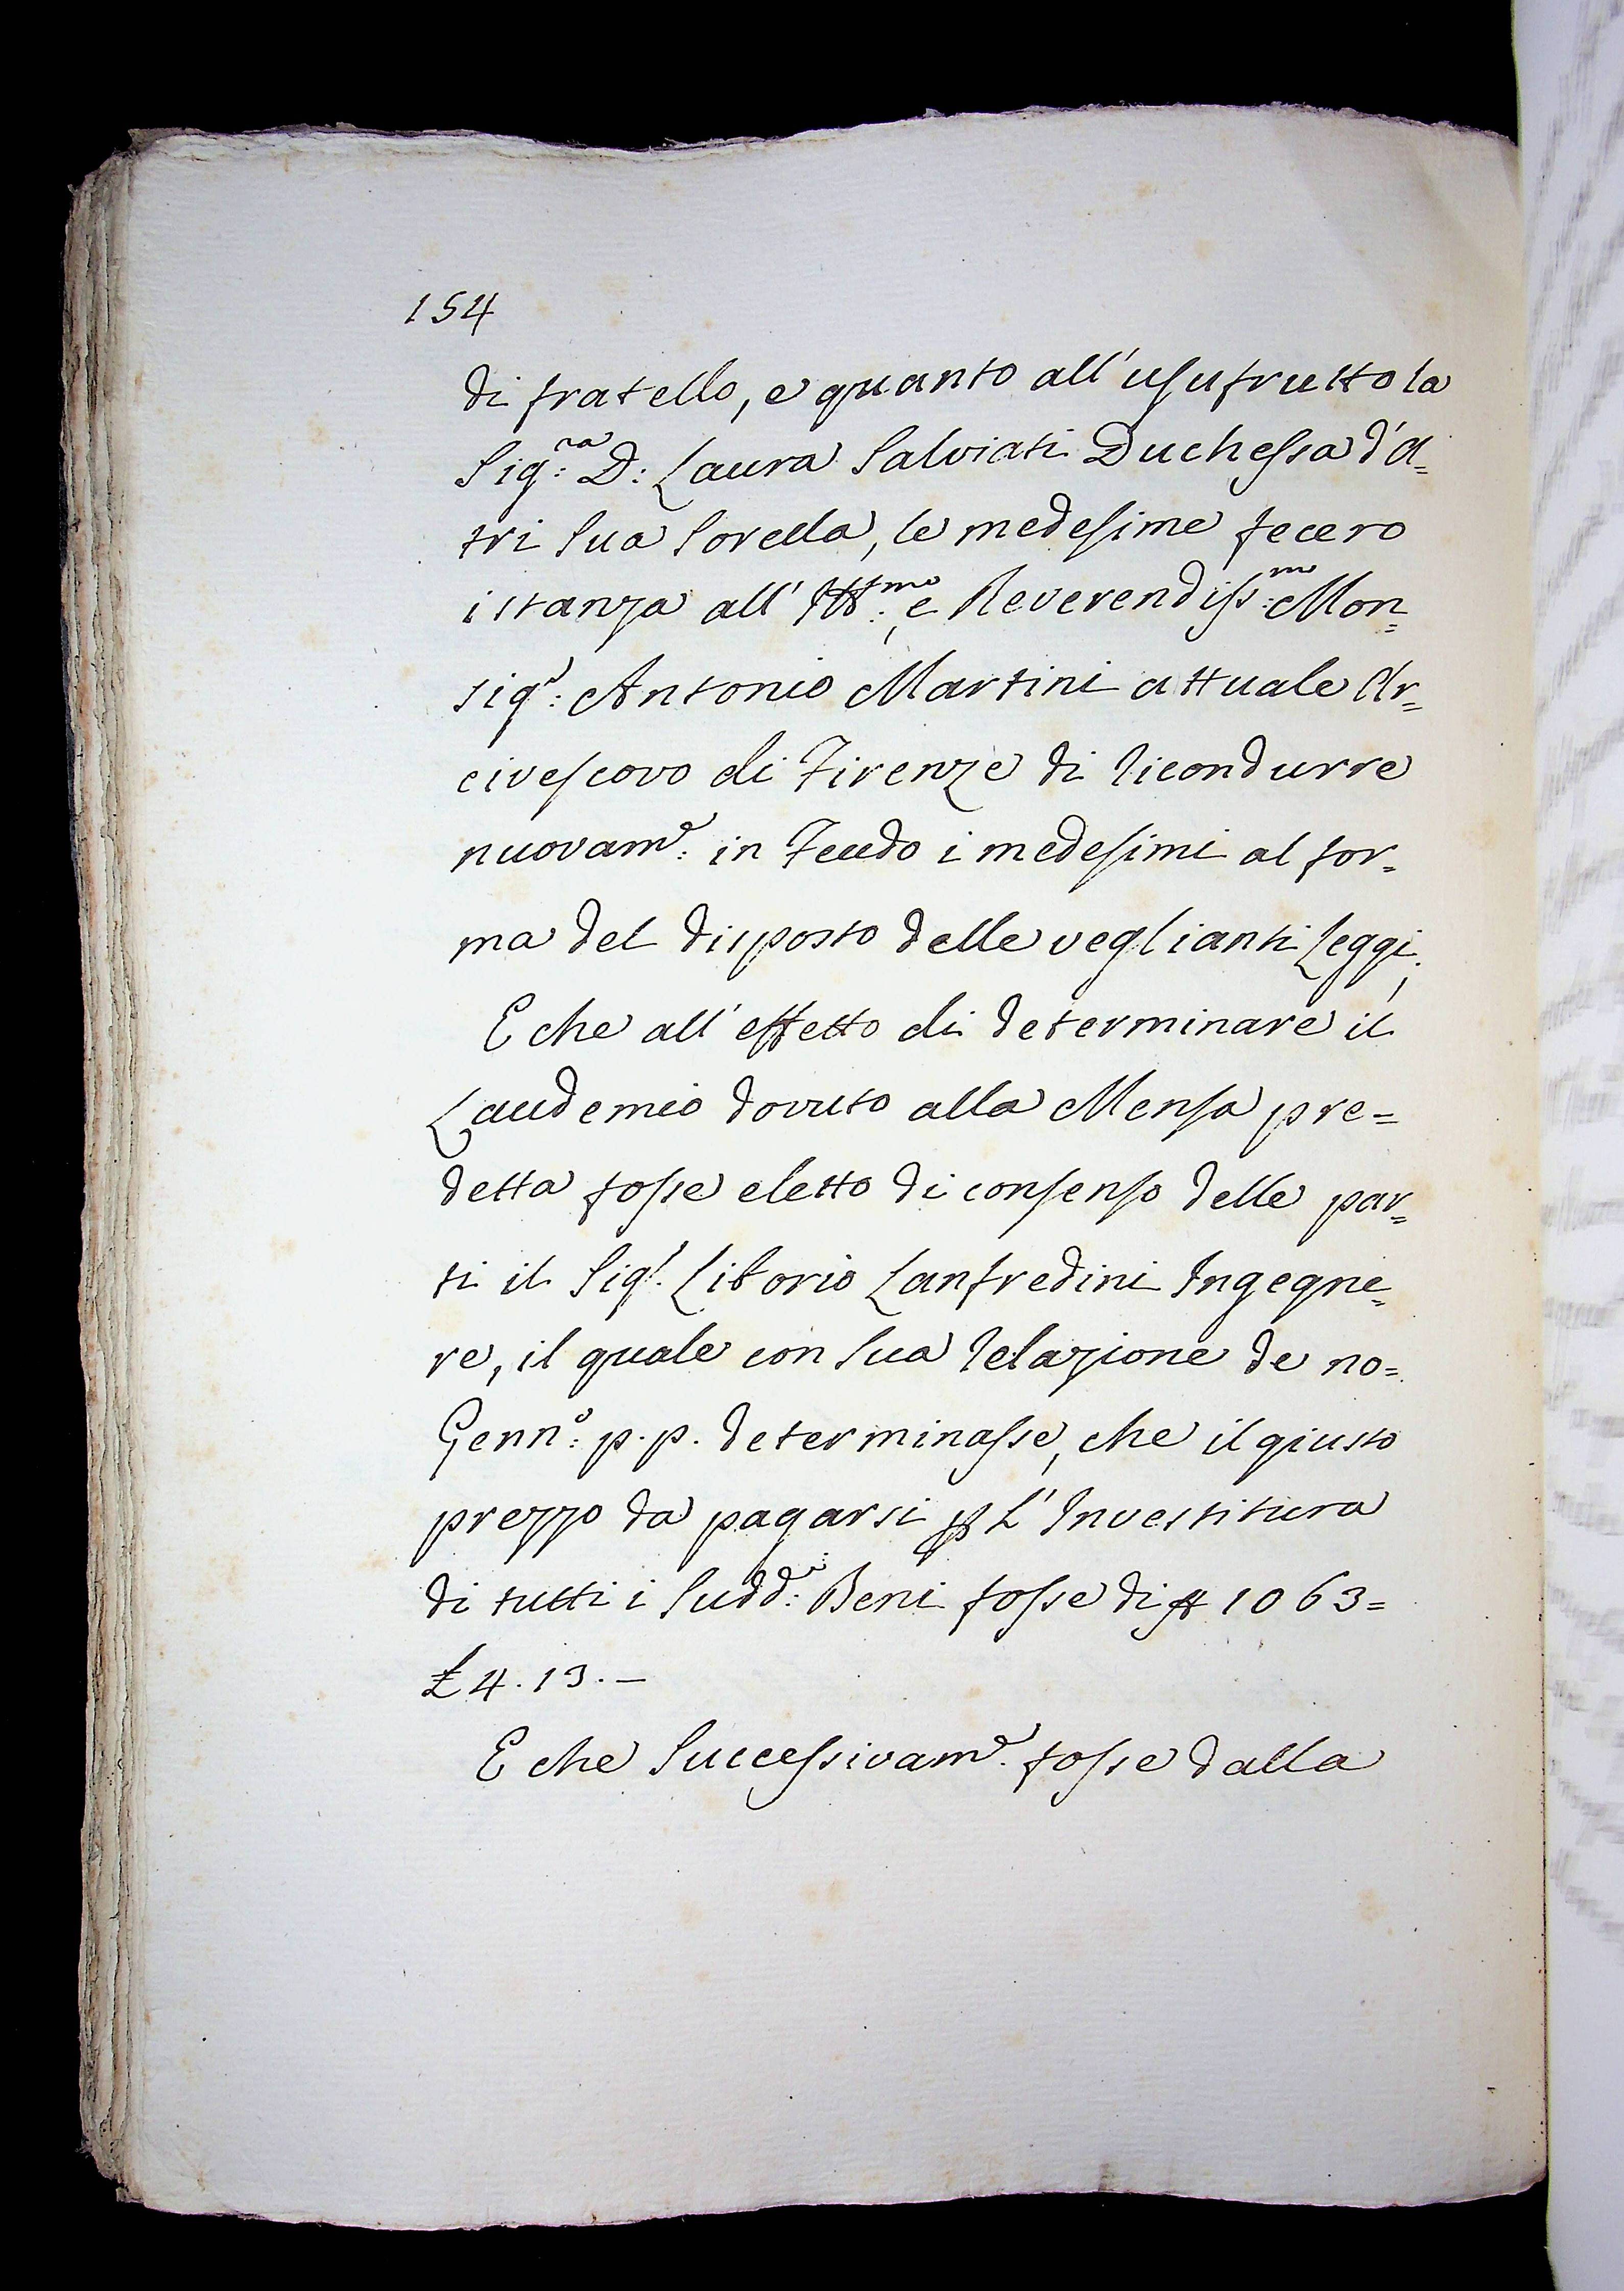 154
di fratello, e quanto all'usufrutto la
Sig:ra D: Laura Salviati Duchessa d'A=
tri Sua Sorella, le medesime fecero
istanza all' Ill:mo, e Reverendiss:mo Mon=
sigr: Antonio Martini attuale Ar=
civescovo di Firenze di ricondurre
nuovame: in Feudo i medesimi al for=
ma del disposto delle veglianti Leggi;
E che all'effetto di determinare il
Laudemio dovuto alla Mensa pre=
detta fosse eletto di consenso delle par=
ti il Sigr. Liborio Lanfredini Ingegne=
re, il quale con Sua relazione de no=
Genno: p.p. determinasse, che il giusto
prezzo da pagarsi p L'Investitura
di tutti i Sudd:i Beni fosse di 1063=
£ 4.13.—
E che Successivame. fosse dalla